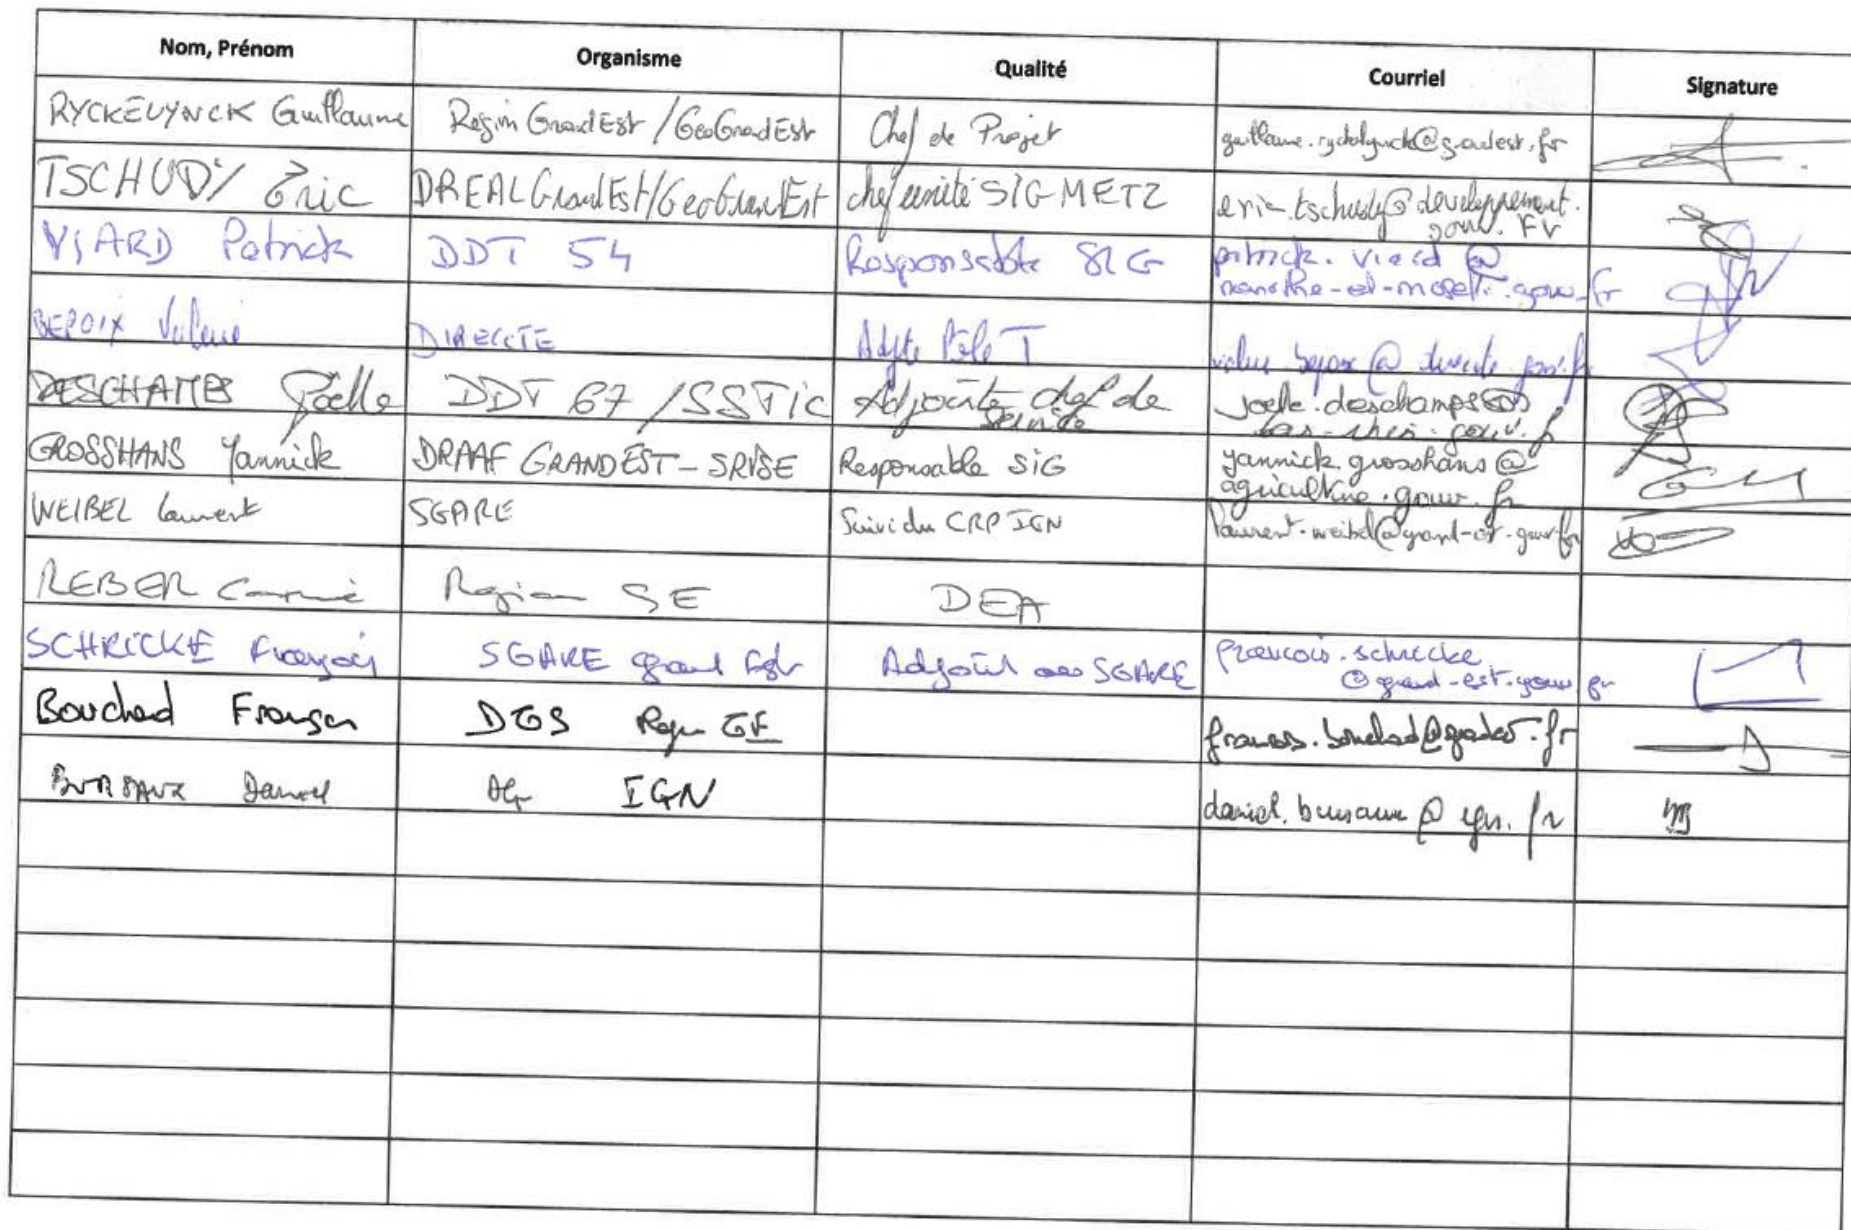 Nom, Prénom Organisme Qualité Courriel Signature
RYCKELYNCK Guillaume Région Grand Est / GeoGrandEst Chef de Projet guillaume.ryckelynck@grandest.fr
TSCHUDY Eric DREAL Grand Est/GeoGrandEst chef unité SIG METZ eric.tschudy@developpement.
gouv.fr
VIARD Patrick DDT 54 Responsable SIG patrick.viard@
meurthe-et-moselle.gouv.fr
BEPOIX Valérie DIRECCTE Adjte Pôle T valerie.bepoix@direccte.gouv.fr
DESCHAMPS Joëlle DDT 67 /SSTIC Adjointe chef de
service
joelle.deschamps@
bas-rhin.gouv.fr
GROSSHANS Yannick DRAAF GRAND EST-SRISE Responsable SIG yannick.grosshans@
agriculture.gouv.fr
WEIBEL Laurent SGARE Suivi du CRP IGN laurent.weibel@grand-est.gouv.fr
REBER Région GE DEA
SCHRICKE François SGARE grand Est Adjoint au SGARE francois.schricke
@grand-est.gouv.fr
Bouchard François DGS Région GE francois.bouchard@grandest.fr
BURSAUX Daniel DG IGN daniel.bursaux@ign.fr